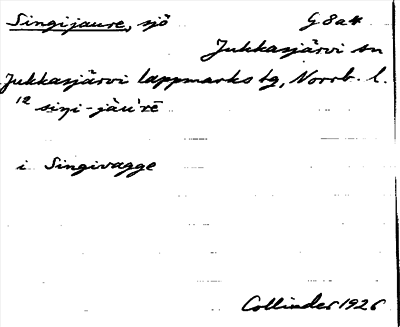 Singijaure, sjö G 8 a 4
Jukkasjärvi sn
Jukkasjärvi lappmarks tg, Norrb. l.
i Singivagge
Collinder 1926